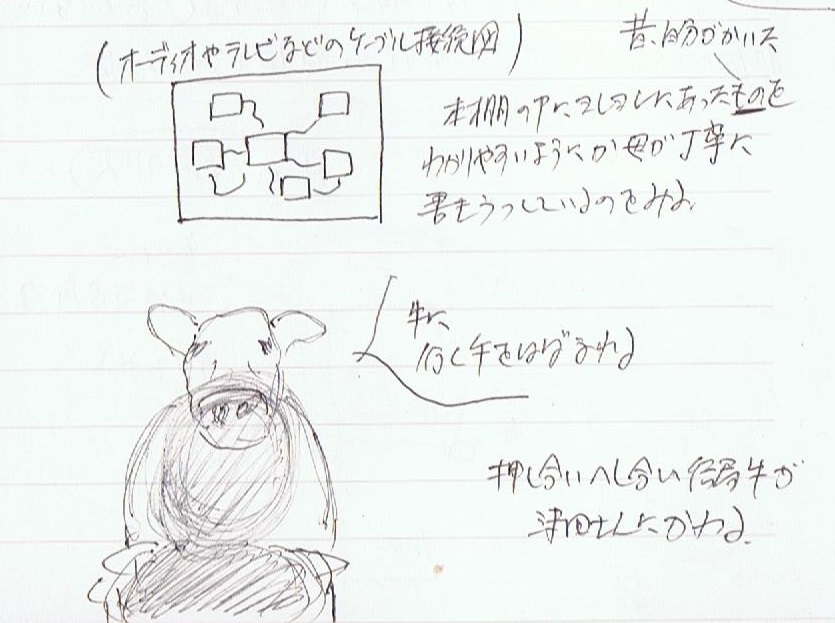 (オーディオやテレビなどのケーブル接続図)
昔、自分がかいた
本棚の中にあったものを
わかりやすいように母が丁寧に
書きうつしているのをみる。
牛に、
行く手をはばまれる
押し合いへし合い結局牛が
津田さんにかわる。